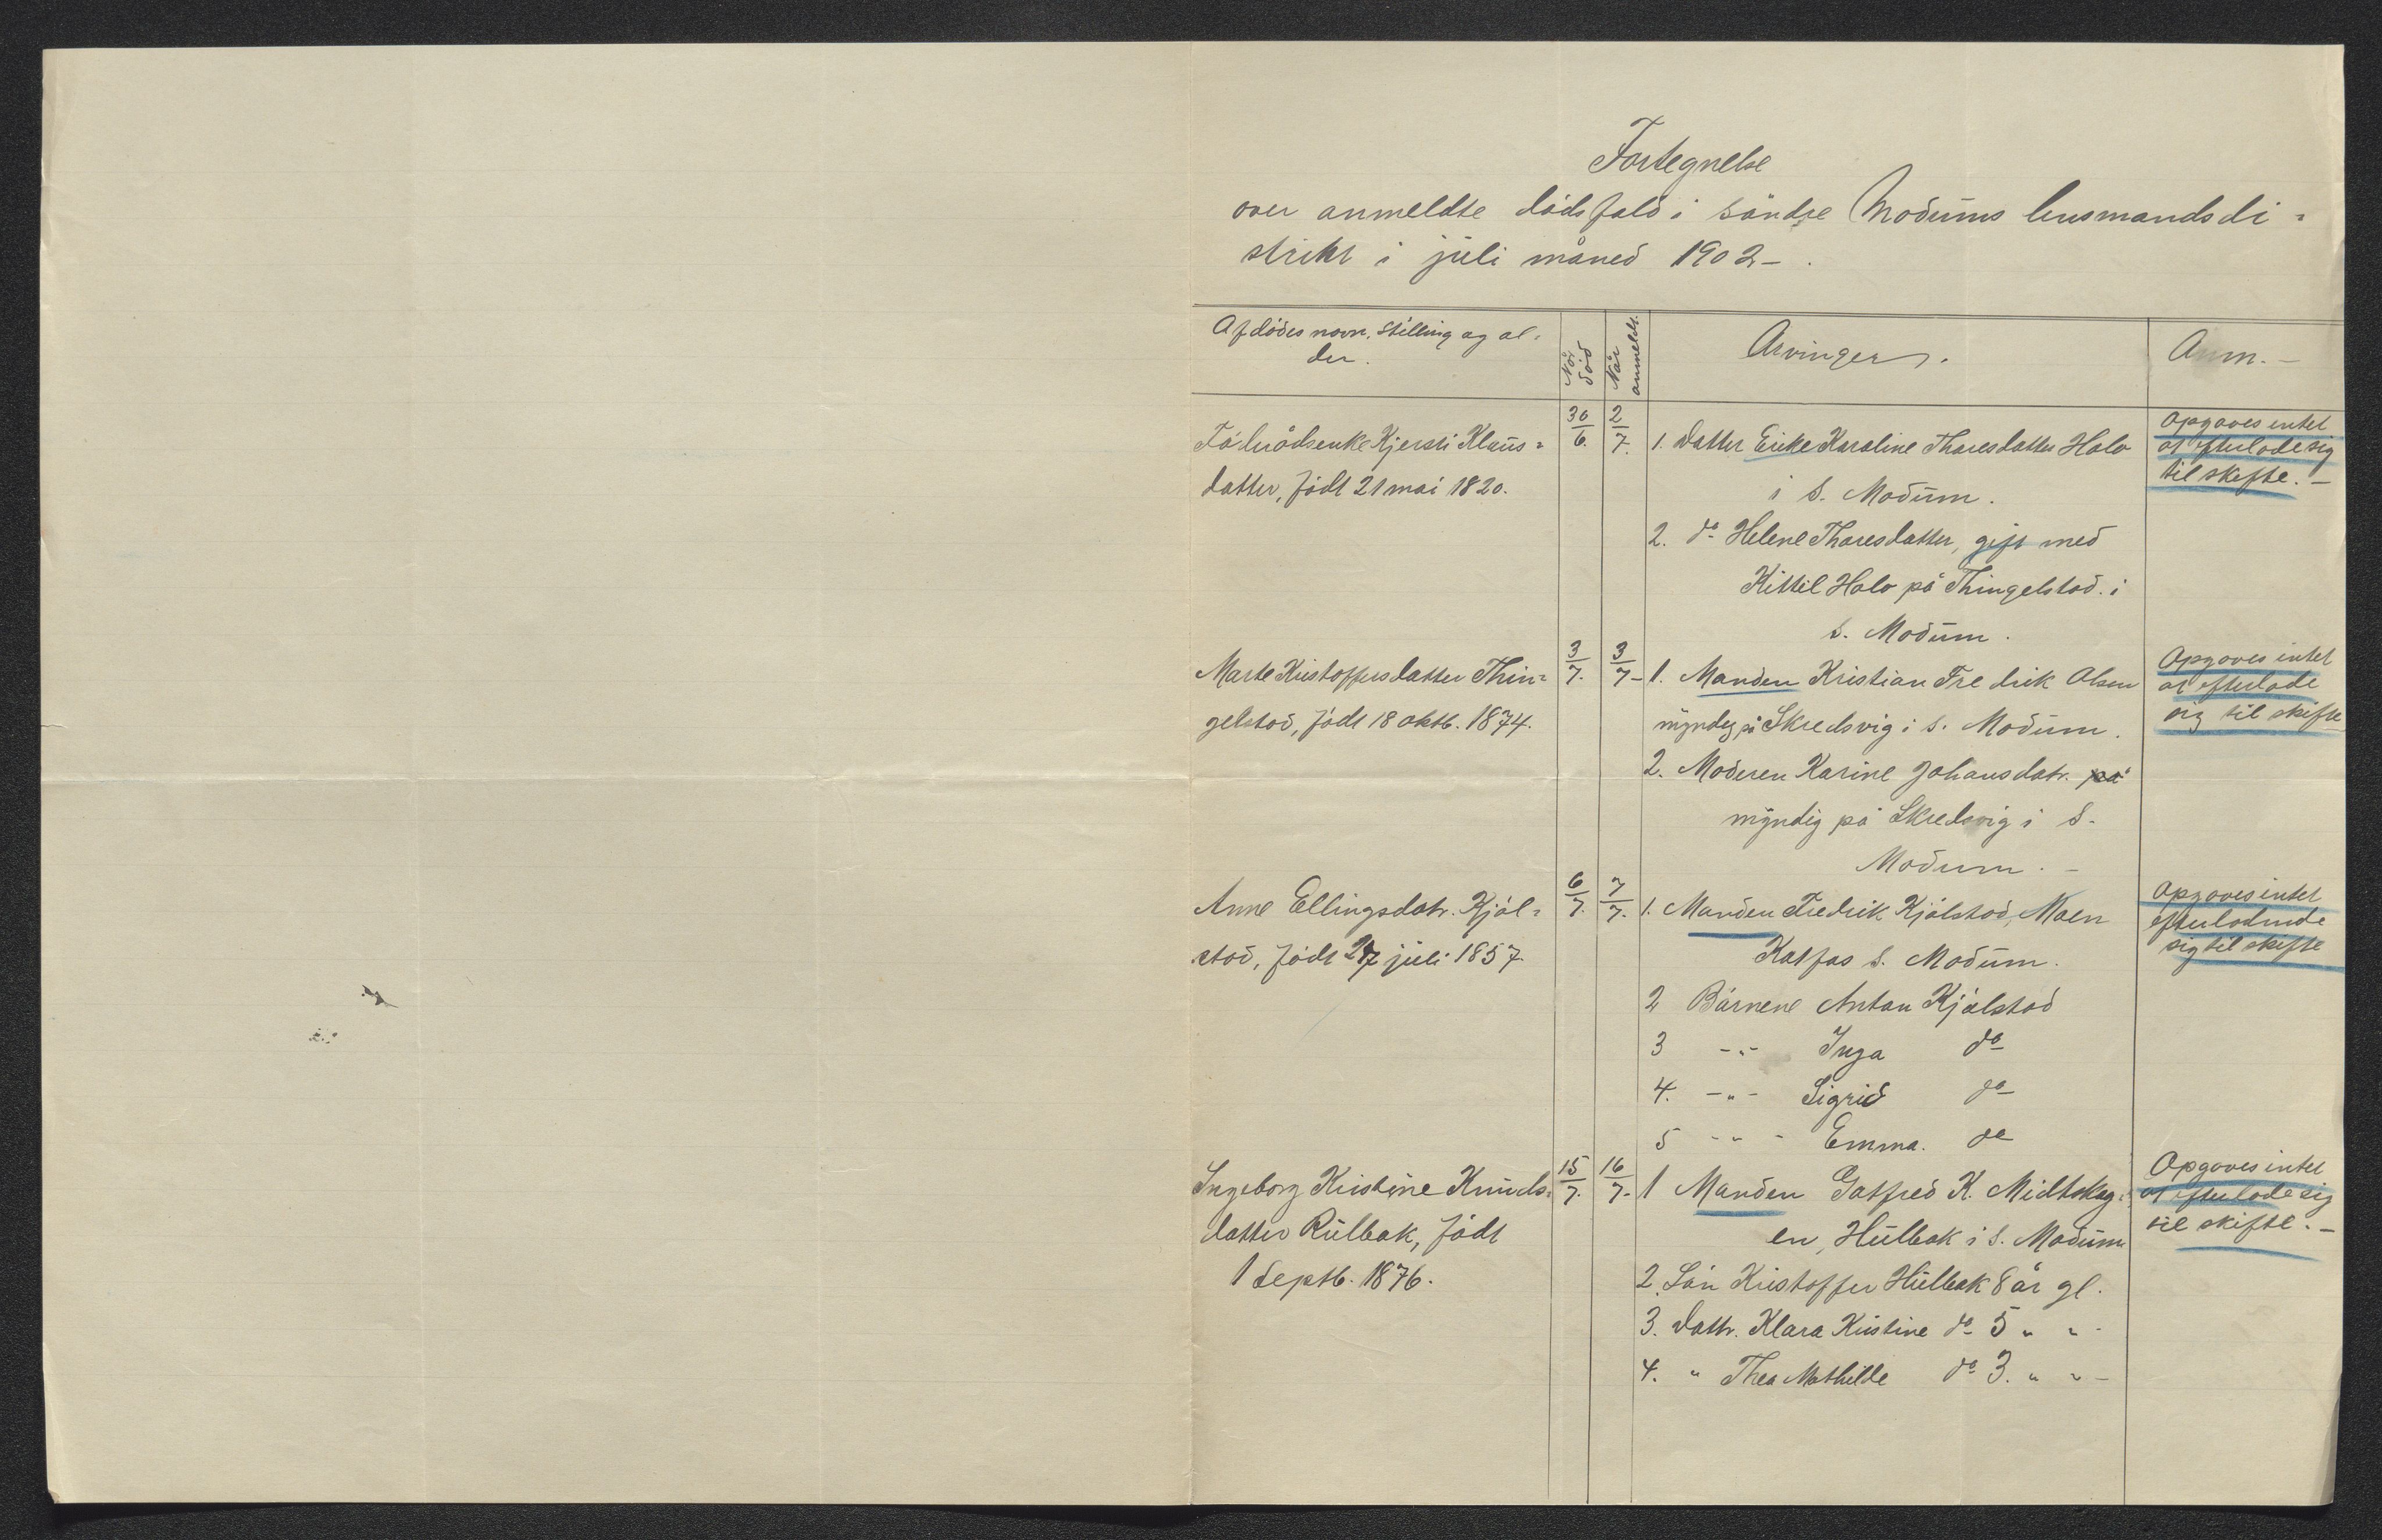 Fortegnelse
over anmeldte dødsfald i søndre Modums lensmandsdi=
strikt i juli måned 1902-.
Afdødes navn, stilling og al-
der.
Når
død
Når
anmeldt.
Arvinger.
Anm.-
Føderådsenke Kjersti Klaus=
datter, født 21 mai 1820.
30/6.
2/7.
1. Datter Enke Karoline Thoresdatter Holo
i S. Modum.
2. do Helene Thoresdatter, gift med
Kittil Holo på Thingelstad. i
S. Modum.
Opgaves intet
at efterlade sig
til skifte.-
Marte Kristoffersdatter Thin=
gelstad, født 18 oktb. 1874.
3/7.
3/7-
1. Manden Kristian Fredrik Olsen
myndig på Skredsvig i S. Modum.
2. Moderen Karine Johansdatr. på
myndig på Skredsvig i S.
Modum.-
Opgaves intet
at efterlade
sig til skifte
Anne Ellingsdatr. Kjøl=
stad, født 27 juli 1857.
6/7.
7/7.
1. Manden Fredrik Kjølstad, Moen
Katfos S. Modum.
2 Børnene Anton Kjølstad
3 -"- Inga do
4. -"- Sigrid do
5 -"- Emma. do
Opgaves intet
efterladende
sig til skifte
Ingeborg Kristine Knuds=
datter Rulbak, født
1 Septb. 1876.
15/7.
16/7-
1 Manden Gotfred K. Midtskog=
en, Hulbak i S. Modum
2. Søn Kristoffer Hulbak 8 år gl.
3. Dattr. Klara Kristine do 5 " "-
4. " Thea Mathilde do 3. " "-
Opgaves intet
at efterlade sig
til skifte.-